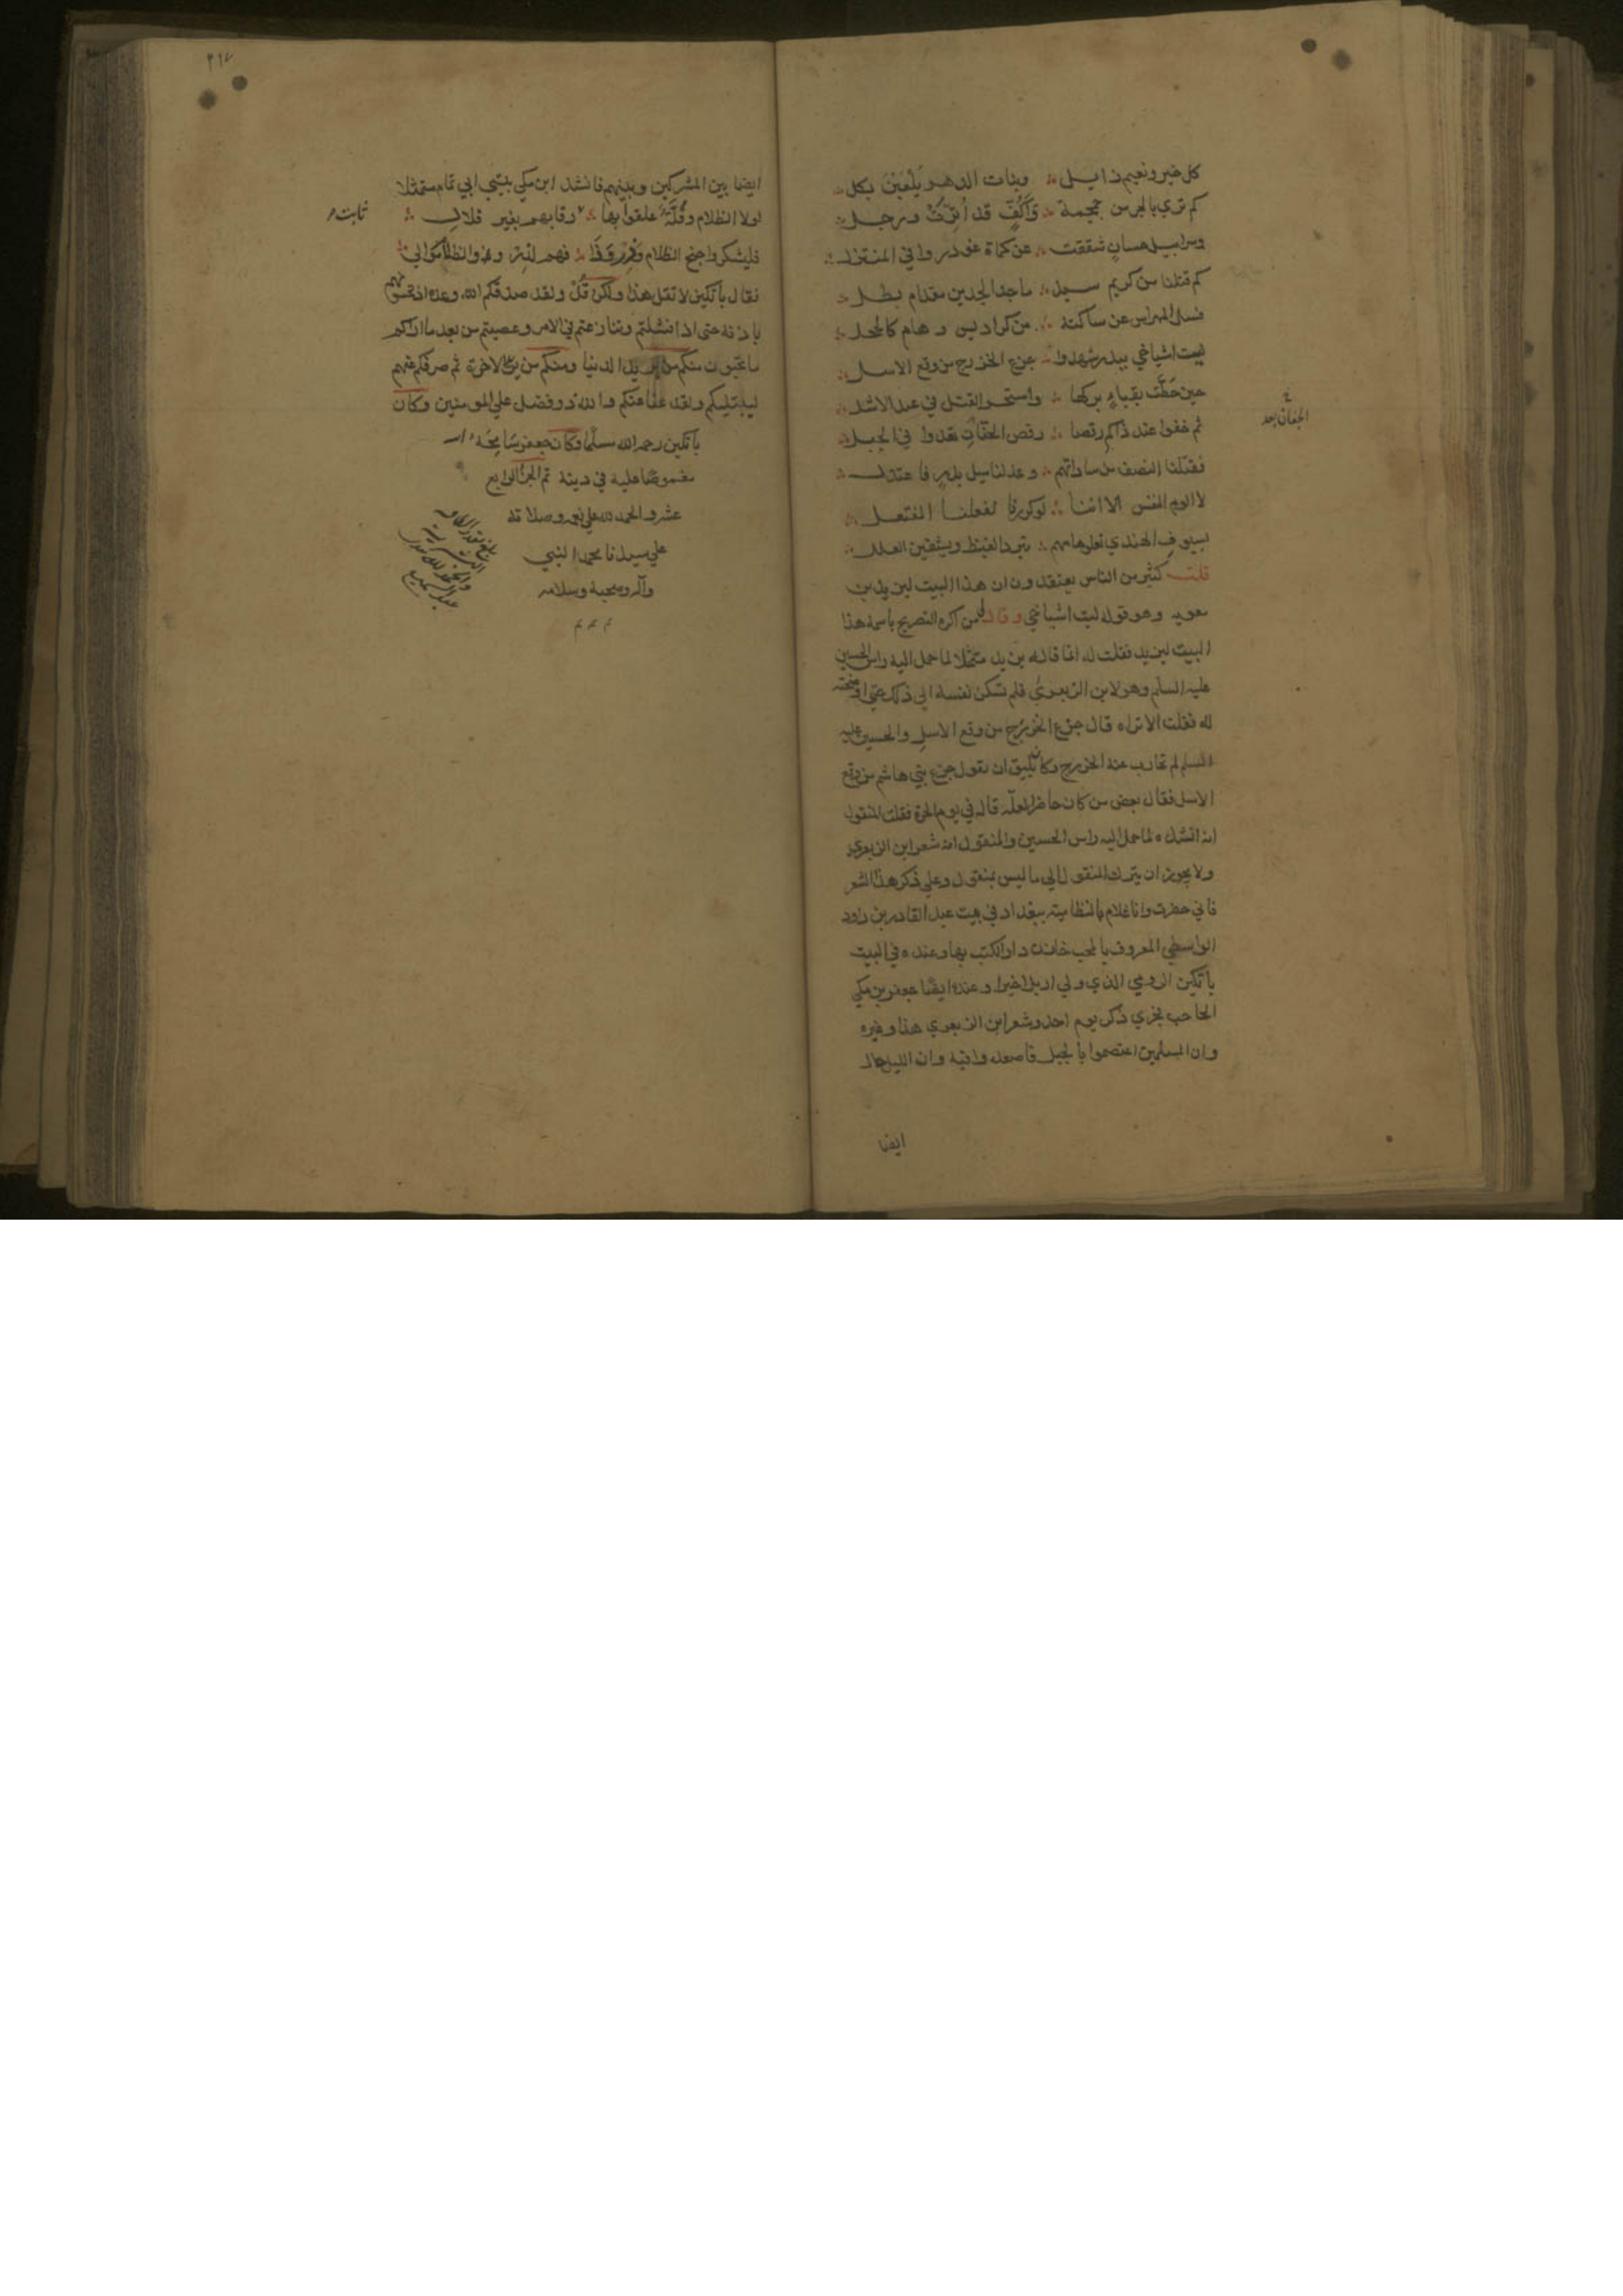 كل خير ونعيم زايل ∴ وبنات الدهر يلعبن بكل ∴
كم تري بالجر من جمجمة ∴ وأكف قد أترت ورجل ∴
وسرابيل حسان شققت ∴ عن كماة غودروا في المنتزل ∴
كم قتلنا من كريم سيد ∴ ماجد الجدين مقدام بطل ∴
فسل المهراس عن ساكنه ∴ من كراديس وهام كالحجل ∴
ليت اشياخي ببدر شهدوا ∴ جزع الخزرج من وقع الاسل ∴
حين حطت بقباء بركها ∴ واستحر القتل في عبد الاشل ∴
ثم خفوا عند ذاكم رقصا ∴ رقص الحفان تعدوا في الجبل ∴
فقتلنا النصف من ساداتهم ∴ وعدلنا ميل بدر فاعتدل ∴
لا الوم النفس الا اننا ∴ لو كررنا لفعلنا المفتعل ∴
بسيوف الهندي تعلو هامهم ∴ تبرد الغيظ ويشفين الغلل ∴
قلت كثير من الناس يعتقدون ان هذا البيت ليزيد بن
معويه وهو قوله ليت اشياخي وقال لي من اكره التصريح باسمه هذا
البيت ليزيد فقلت له انما قاله يزيد متمثلا لما حمل اليه راس الحسين
عليه السلم وهو لابن الزبعرى فلم تسكن نفسه الى ذلك حتى اوضحته
له فقلت الا تراه قال جزع الخزرج من وقع الاسل والحسين عليه
السلم لم تحارب عنه الخزرج وكان يليق ان يقول جزع بني هاشم من وقع
الاسل فقال بعض من كان حاضرا لعله قاله في يوم الحرة فقلت المنقول
انه انشده لما حمل اليه راس الحسين والمنقول انه شعر ابن الزبعرى
ولا يجوز ان يترك المنقول الى ما ليس بمنقول وعلي ذكر هذا الشعر
فاني حضرت وانا غلام بالنظامية ببغداد في بيت عبد القادر بن داود
الواسطي المعروف بالمحب خازن دار الكتب بها وعنده في البيت
باتكين الرومي الذي ولي اربل اخيرا وعنده ايضا جعفر بن مكي
الحاجب فجري ذكر يوم احد وشعر ابن الزبعري هذا وغيره
وان المسلمين اعتصموا بالجبل فاصعدوا فيه وان الليل حال
ايضا
٢١٧
ايضا بين المشركين وبينهم فانشد ابن مكي بيتي ابي تمام متمثلا
لولا الظلام وقلة علقوا بها ∴ رقابهم بغير قلال ∴
فليشكروا جنح الظلام ودروذا ∴ فهم لدروذ والظلام موالي ∴
فقال باتكين لا تقل هذا ولكن قل ولقد صدقكم الله وعده اذ تحسونهم
باذنه حتى اذا فشلتم وتنازعتم في الامر وعصيتم من بعد ما اراكم
ما تحبون منكم من يريد الدنيا ومنكم من يريد الاخرة ثم صرفكم عنهم
ليبتليكم ولقد عفا عنكم والله ذو فضل على المومنين وكان
باتكين رحمه الله مسلما وكان جعفر سامحه الله
مغموصا عليه في دينه تم الجزء الرابع
عشر والحمد لله علي نعمه وصلاته
علي سيدنا محمد النبي
وآله وصحبه وسلامه